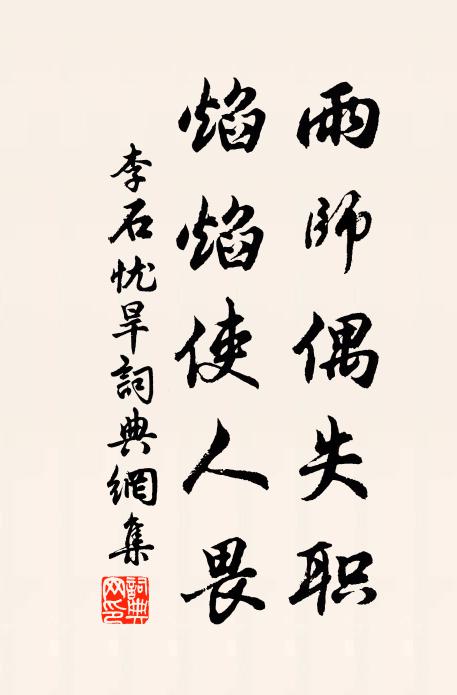 雨師偶失职
焰焰使人畏
李石忧旱詞典網集
詞典网印